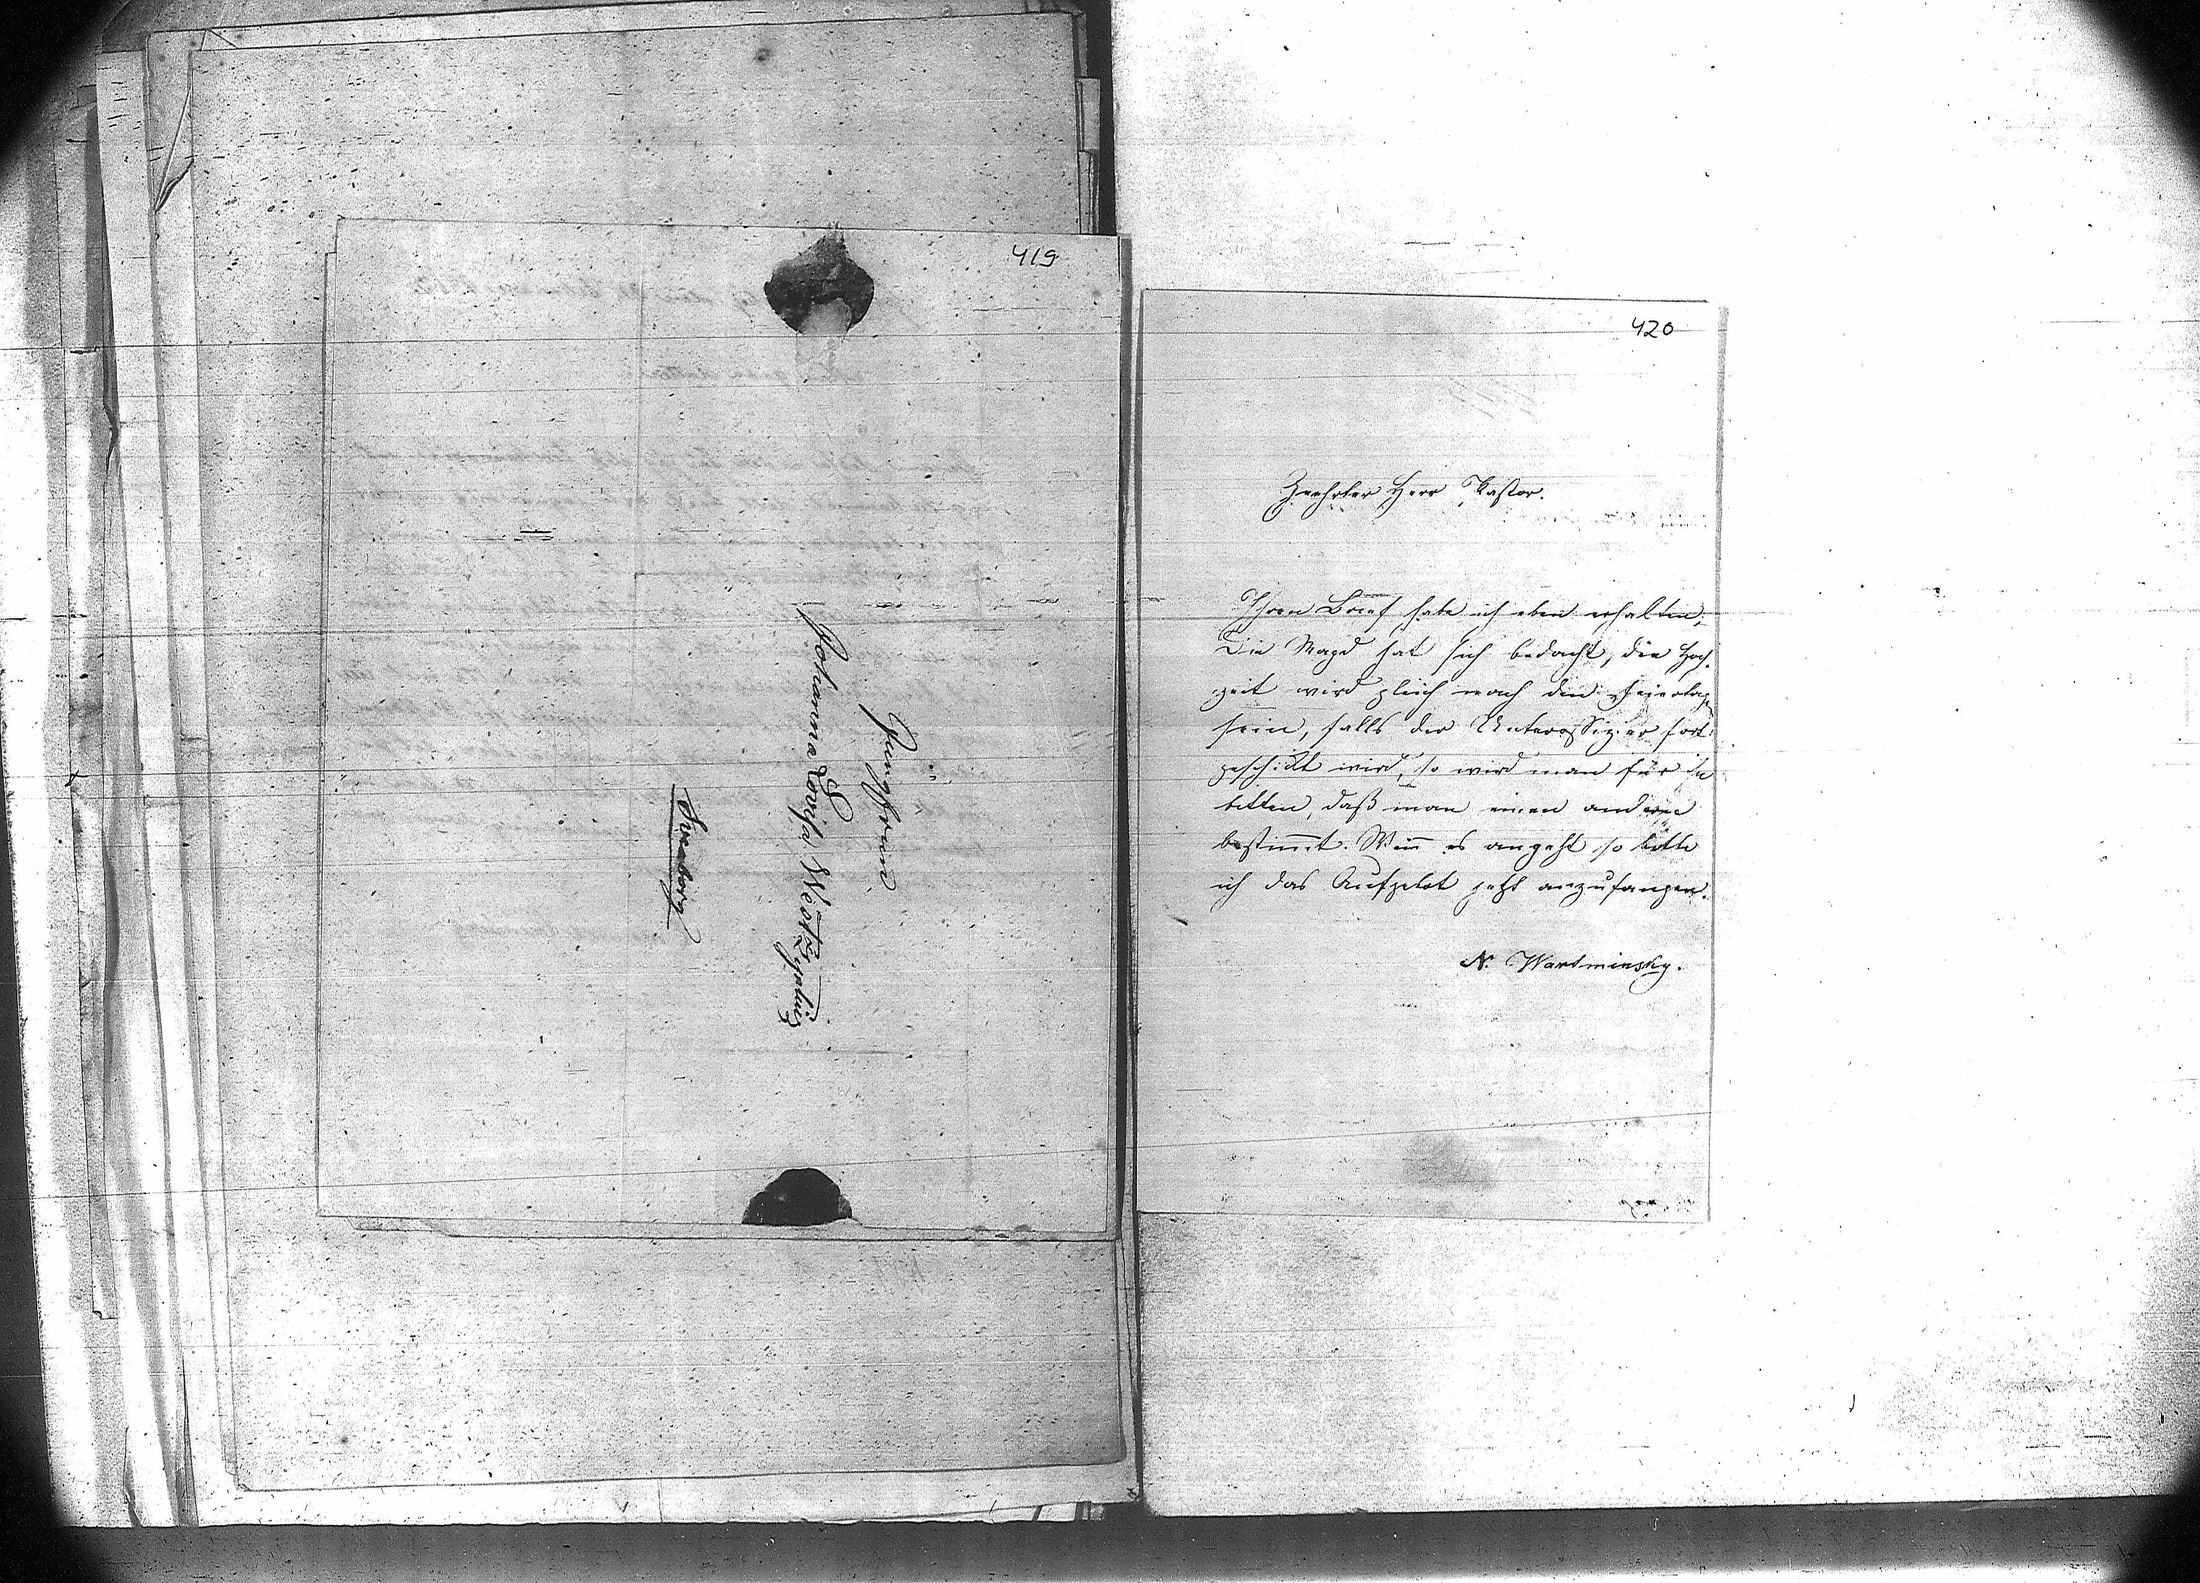 419
Jungfrun
Johanna Lovisa Westzynthius
Sveaborg
420
Geehrter Herr Pastor.
Ihren Brief habe ich eben erhalten,
Die Magd hat sich bedacht, die Hoch-
zeit wird gleich nach den Feiertagen
sein, falls der Unteroffizier fort-
geschickt wird, so wird man für ihn
bitten, daß man einen andern
bestim̅t. Wen̅ es angeht so bitte
ich das Aufgebot jetzt anzufangen.
N. Wardminsky.